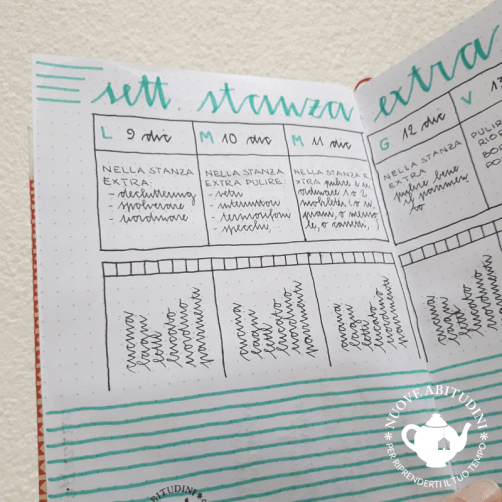 sett. stanza extra
L 9 dic
M 10 dic
M 11 dic
G 12 dic
V 13
NELLA STANZA
EXTRA:
- decluttering
- spolverare
- riordinare
NELLA STANZA
EXTRA PULIRE
- vetri
- interruttori
- termosifoni
- specchi
NELLA STANZA E
XTRA pulire e ri
ordinare 1 o 2
NELLA STANZA
EXTRA
pulire bene
il pavimen
to
PULIRE
cucina
bagni
letti
bucato
riordino
pavimenti
cucina
bagni
letti
bucato
riordino
pavimenti
cucina
bagni
letti
bucato
riordino
pavimenti
cucina
bagni
letti
bucato
riordino
pavimenti
NUOVE ABITUDINI
PER RIPRENDERTI IL TUO TEMPO
ABITUDINI